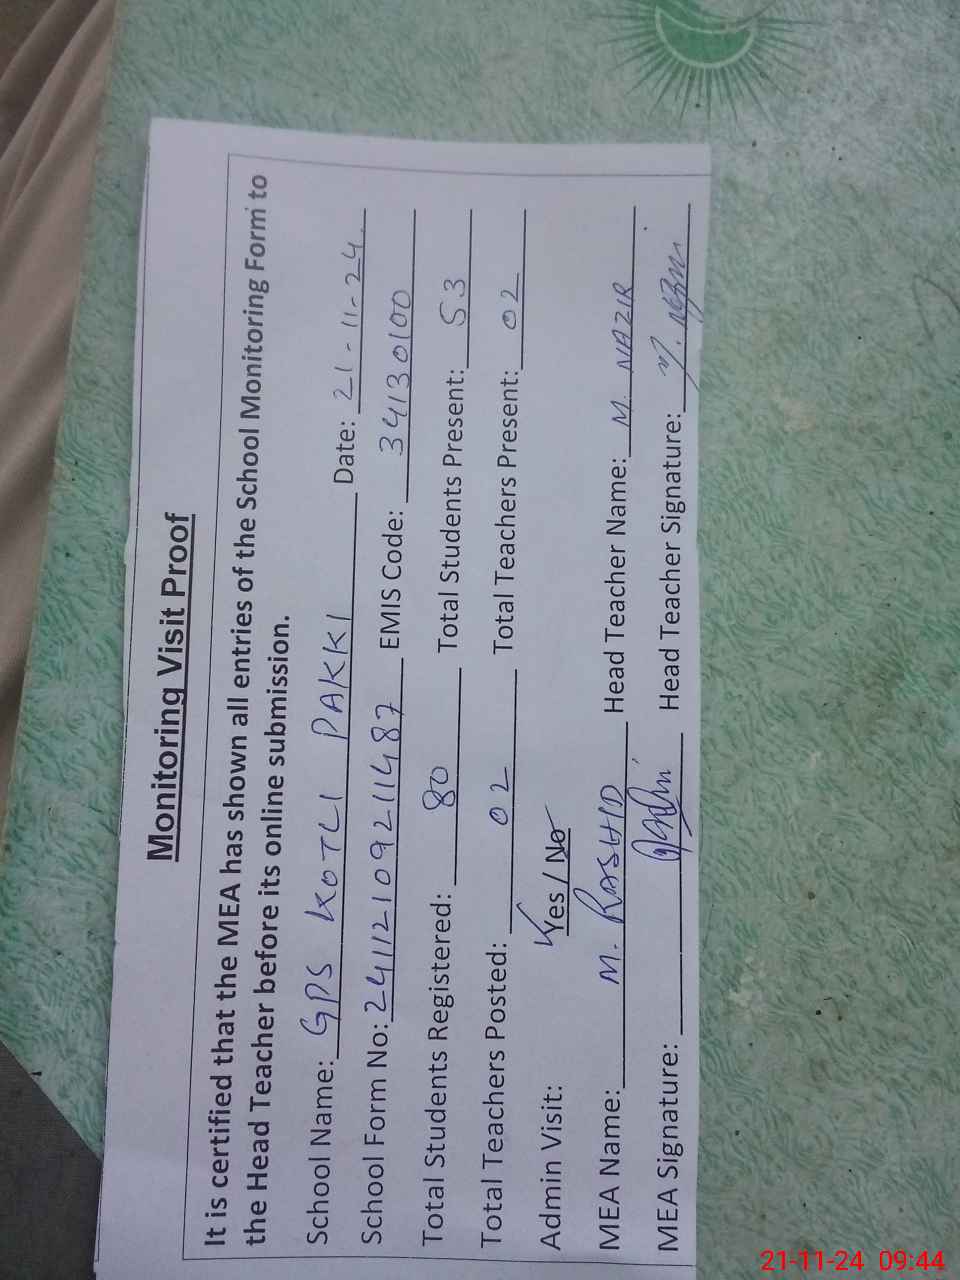 Monitoring Visit Proof
It is certified that the MEA has shown all entries of the School Monitoring Form to
the Head Teacher before its online submission.
School Name: GPS KOTLI PAKKI Date: 21-11-24.
School Form No: 24112109211487 EMIS Code: 34130100
Total Students Registered: 80 Total Students Present: 53
Total Teachers Posted: 02 Total Teachers Present: 02
Admin Visit: Yes / No
MEA Name: M. RASHID Head Teacher Name: M. NAZIR
MEA Signature: Head Teacher Signature:
21-11-24 09:44